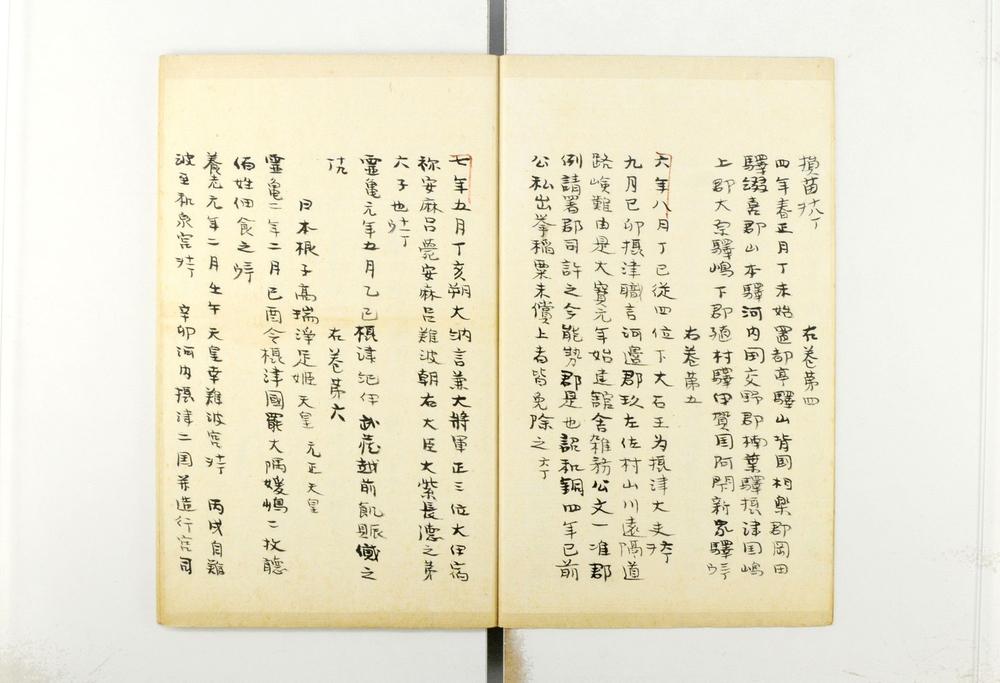 損苗
右巻第四
四年春正月丁未始置都亭驛山背国相樂郡岡田
驛綴喜郡山本驛河内国交野郡楠葉驛摂津国嶋
上郡大原驛嶋下郡殖村驛伊賀国阿閇郡新家驛
右巻第五
六年八月丁巳従四位下大石王为摂津大夫
九月己卯摂津職言河邊郡玖左佐村山川遠隔道
路嶮難由是大寳元年始建舘舎雑務公文一准郡
例請署郡司許之今能勢郡是也詔和銅四年已前
公私出挙稲粟未償上者皆免除之
七年五月丁亥朔大納言兼大将軍正三位大伴宿
祢安麻呂薨安麻呂難波朝右大臣大紫長徳之第
六子也
霊亀元年五月乙巳摂津紀伊武蔵越前飢賑貸之
右巻第六
日本根子高瑞浄足姫天皇 元正天皇
霊亀二年二月己酉令摂津國罷大隅媛嶋二牧聴
佰姓佃食之
養老元年二月壬午天皇幸難波宮 丙戌自難
波至和泉宮 辛卯河内摂津二国并造行宮司